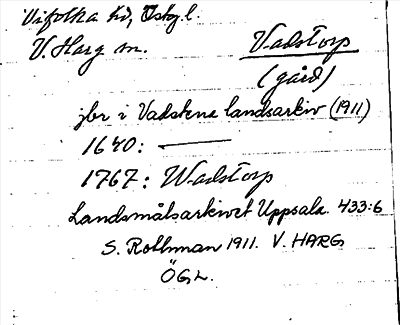 Vifolka hd, Östg.l.
V. Harg sn.
Vadstorp
(gård)
jbr i Vadstena landsarkiv (1911)
1640: —
1767: Wadstorp
Landsmålsarkivet Uppsala 433:6
S. Rothman 1911. V. HARG
ÖGL.